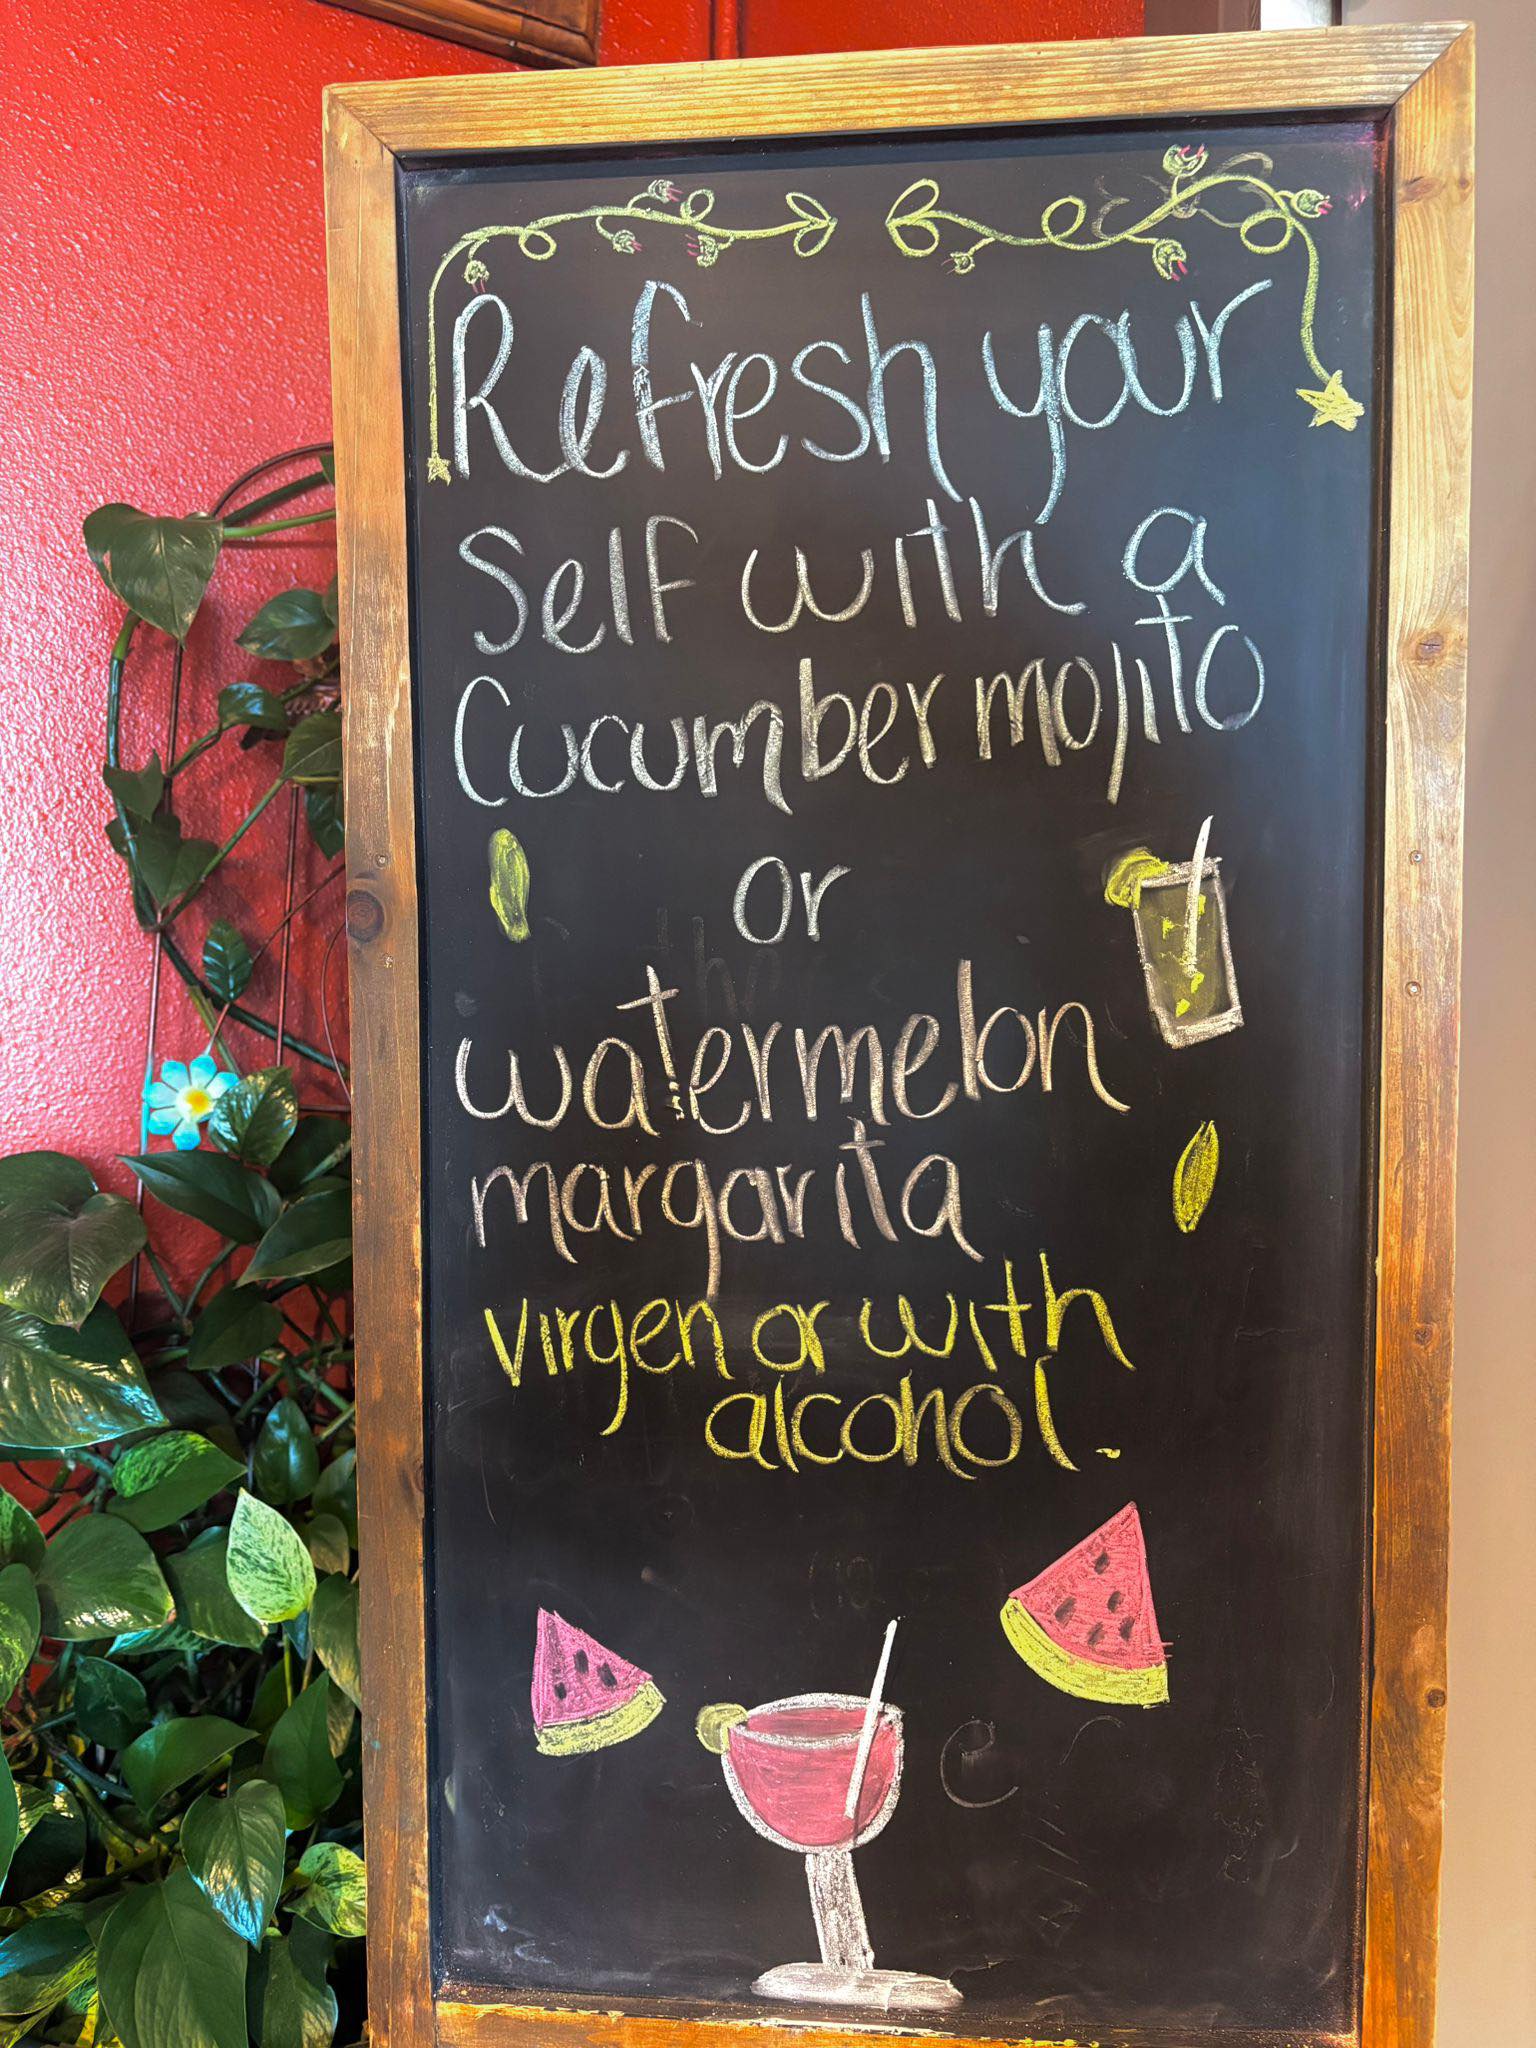 Refresh your
Self with a
Cucumber mojito
or
watermelon
margarita
virgen or with
alcohol.